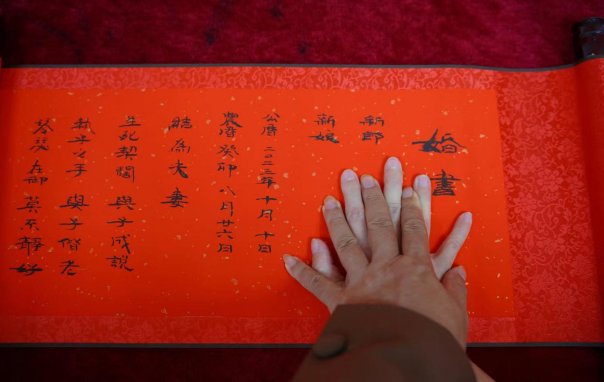 婚書
新郎
新娘
公曆 二〇二三年十月十日
農曆癸卯 八月廿六日
結為夫妻
生死契闊 與子成說
執子之手 與子偕老
琴瑟在御 莫不靜好